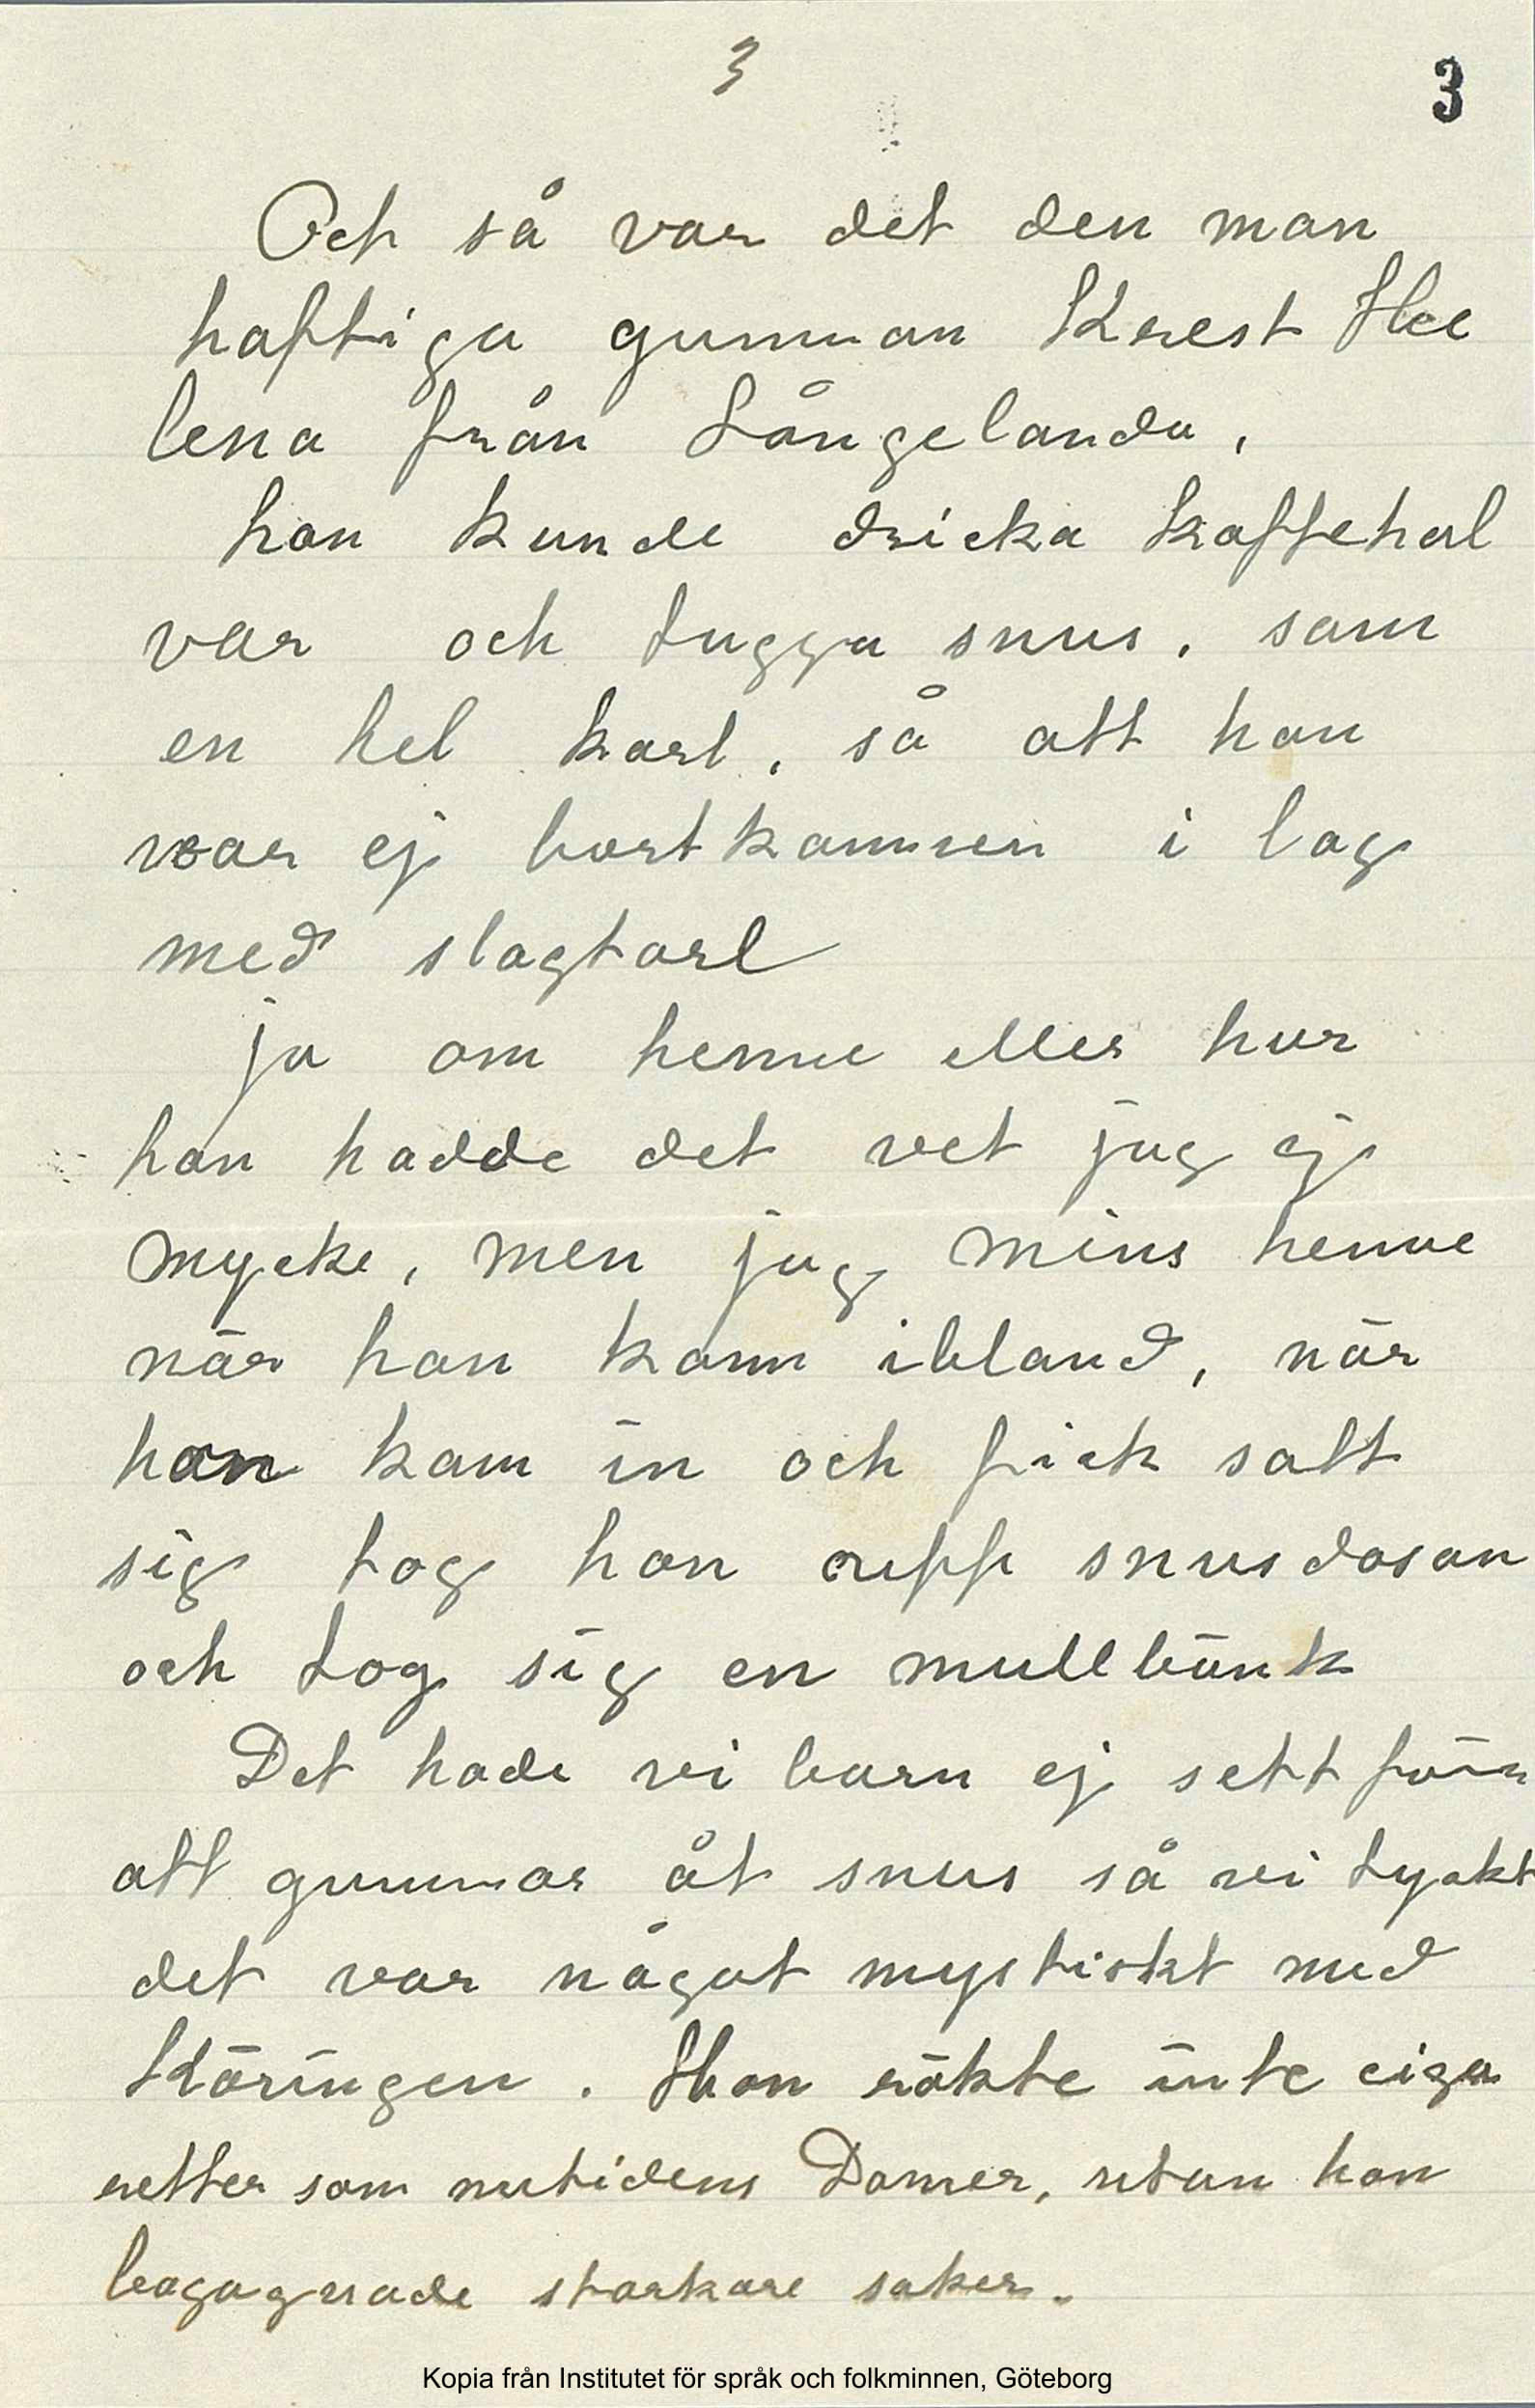 3
3
Och så var det den man
haftiga gumman Krest Hee
lena från Långelanda,
hon kunde dricka kaffehal
var och tugga snus, som
en hel karl, så att hon
var ej bortkommen i lag
med slagtarl
ja om henne eller hur
hon hadde det vet jag ej
mycke, men jag mins henne
när hon kom ibland, när
hon kam in och fick satt
sig tog hon upp snusdosan
och tog sig en mullbänk
Det hade vi barn ej sett förr
att gummor åt snus så vi tyckt
det var något mystiskt med
Käringen. Hon rökte inte ciga
retter som nutidens Damer, utan hon
bagagnade starkare saker.
Kopia från Institutet för språk och folkminnen, Göteborg